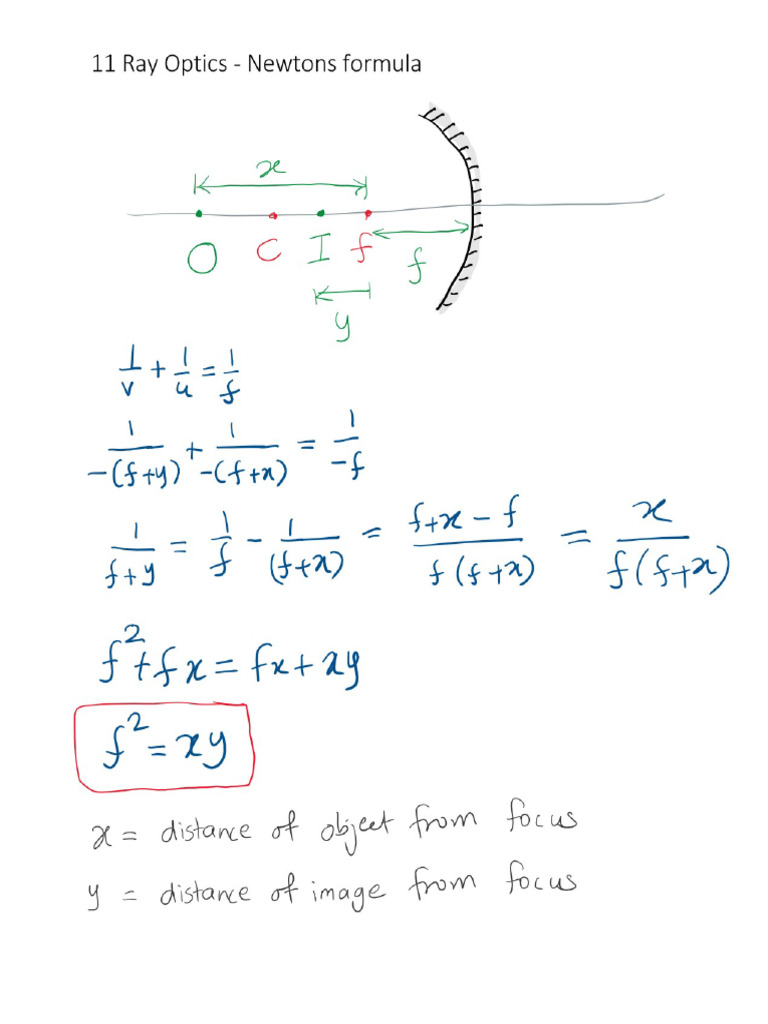 11 Ray Optics - Newtons formula
x
O C I f f
y
1/v + 1/u = 1/f
1/-(f+y) + 1/-(f+x) = 1/-f
1/f+y = 1/f - 1/(f+x) = f+x-f/f(f+x) = x/f(f+x)
f²+fx = fx+xy
f² = xy
x = distance of object from focus
y = distance of image from focus